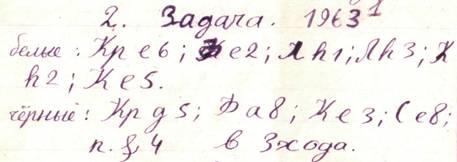 2. Задача. 1963 1
белые: Кр е6; Фе2; Лh1; Лh3; К
h2; Ке5.
чёрные: Кр д5; Фа8; Ке3; Се8;
п. g4 в 3 хода.